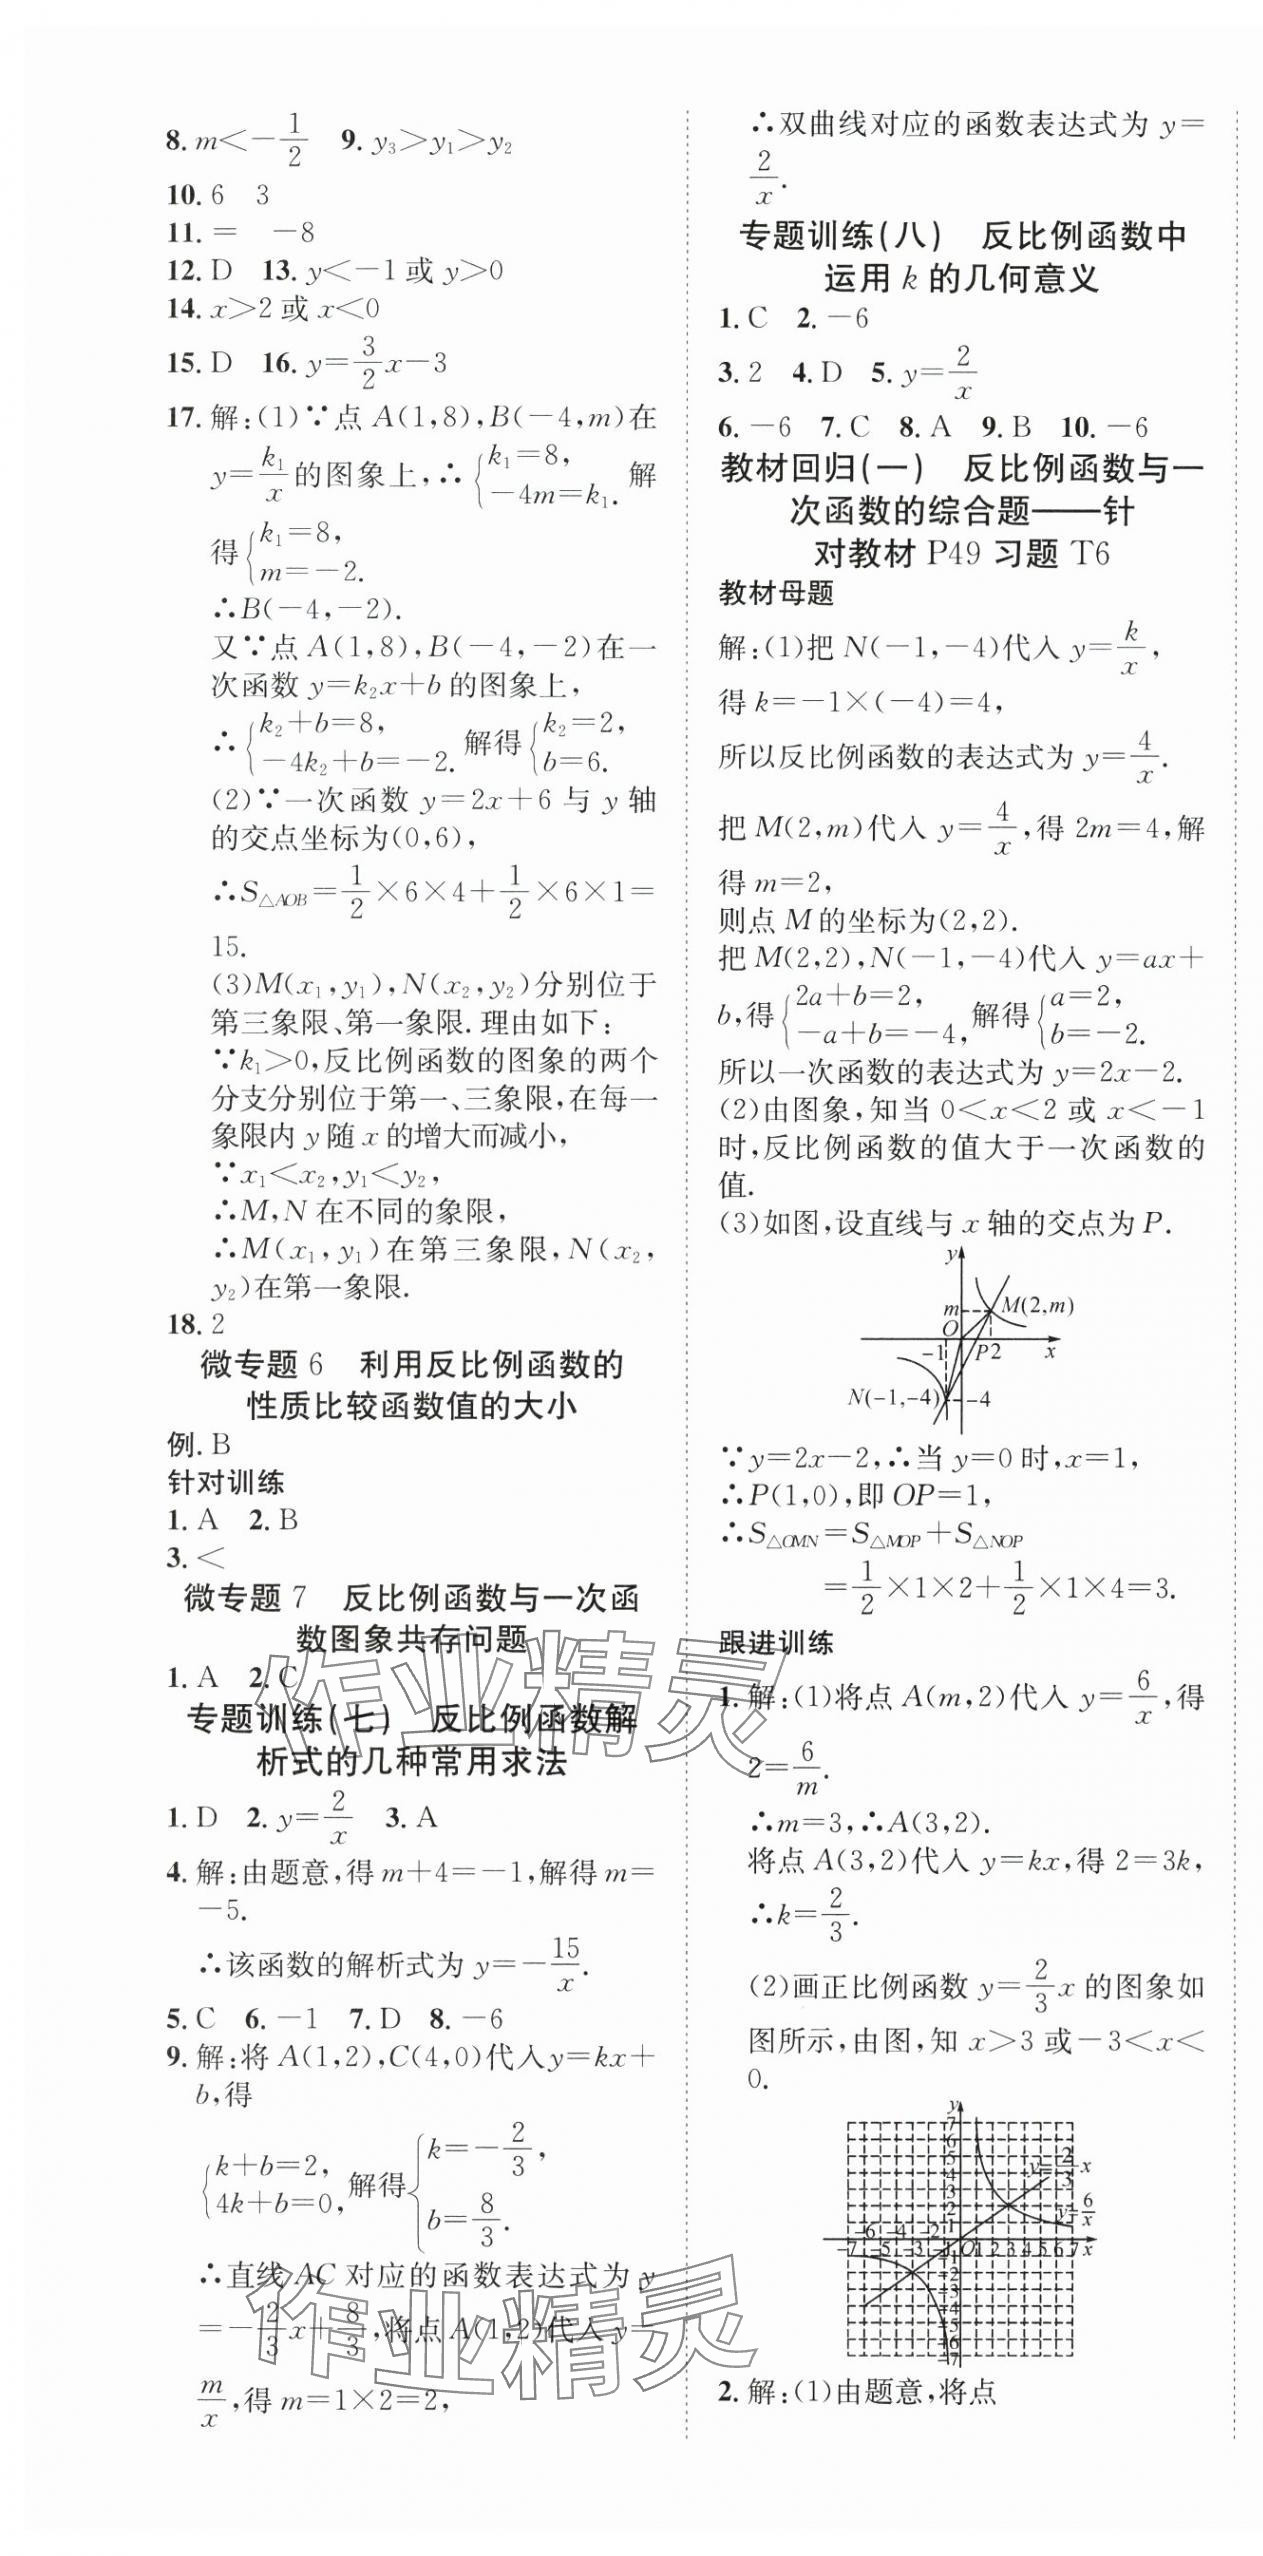 8. m<-1/2  9. y₃>y₁>y₂
10. 6  3
11. =  -8
12. D  13. y<-1或y>0
14. x>2或x<0
15. D  16. y=3/2x-3
17. 解:(1)∵点A(1,8),B(-4,m)在
y=k₁/x的图象上,∴{k₁=8, -4m=k₁. 解
得{k₁=8, m=-2.
∴B(-4,-2).
又∵点A(1,8),B(-4,-2)在一
次函数y=k₂x+b的图象上,
∴{k₂+b=8, -4k₂+b=-2. 解得{k₂=2, b=6.
(2)∵一次函数y=2x+6与y轴
的交点坐标为(0,6),
∴S△AOB=1/2×6×4+1/2×6×1=
15.
(3)M(x₁,y₁),N(x₂,y₂)分别位于
第三象限、第一象限.理由如下:
∵k₁>0,反比例函数的图象的两个
分支分别位于第一、三象限,在每一
象限内y随x的增大而减小,
∵x₁<x₂,y₁<y₂,
∴M,N在不同的象限,
∴M(x₁,y₁)在第三象限,N(x₂,
y₂)在第一象限.
18. 2
微专题6 利用反比例函数的
性质比较函数值的大小
例. B
针对训练
1. A  2. B
3. <
微专题7 反比例函数与一次函
数图象共存问题
1. A  2. C
专题训练(七) 反比例函数解
析式的几种常用求法
1. D  2. y=2/x  3. A
4. 解:由题意,得m+4=-1,解得m=
-5.
∴该函数的解析式为y=-15/x.
5. C  6. -1  7. D  8. -6
9. 解:将A(1,2),C(4,0)代入y=kx+
b,得
{k+b=2, 4k+b=0, 解得{k=-2/3, b=8/3.
∴直线AC对应的函数表达式为y
=-2/3x+8/3,将点A(1,2)代入y=
m/x,得m=1×2=2,
∴双曲线对应的函数表达式为y=
2/x.
专题训练(八) 反比例函数中
运用k的几何意义
1. C  2. -6
3. 2  4. D  5. y=2/x
6. -6  7. C  8. A  9. B  10. -6
教材回归(一) 反比例函数与一
次函数的综合题——针
对教材P49习题T6
教材母题
解:(1)把N(-1,-4)代入y=k/x,
得k=-1×(-4)=4,
所以反比例函数的表达式为y=4/x.
把M(2,m)代入y=4/x,得2m=4,解
得m=2,
则点M的坐标为(2,2).
把M(2,2),N(-1,-4)代入y=ax+
b,得{2a+b=2, -a+b=-4, 解得{a=2, b=-2.
所以一次函数的表达式为y=2x-2.
(2)由图象,知当0<x<2或x<-1
时,反比例函数的值大于一次函数的
值.
(3)如图,设直线与x轴的交点为P.
y
m M(2,m)
O
-1 P 2 x
N(-1,-4) -4
∵y=2x-2,∴当y=0时,x=1,
∴P(1,0),即OP=1,
∴S△OMN=S△MOP+S△NOP
=1/2×1×2+1/2×1×4=3.
跟进训练
1. 解:(1)将点A(m,2)代入y=6/x,得
2=6/m.
∴m=3,∴A(3,2).
将点A(3,2)代入y=kx,得2=3k,
∴k=2/3.
(2)画正比例函数y=2/3x的图象如
图所示,由图,知x>3或-3<x<
0.
y
7
6
5
4
3
2
1
y=2/3x
y=6/x
-6 -4 -2
-7 -5 -3 -1 O 1 2 3 4 5 6 7 x
-1
-2
-3
-4
-5
-6
-7
2. 解:(1)由题意,将点
作业精灵
作业精灵